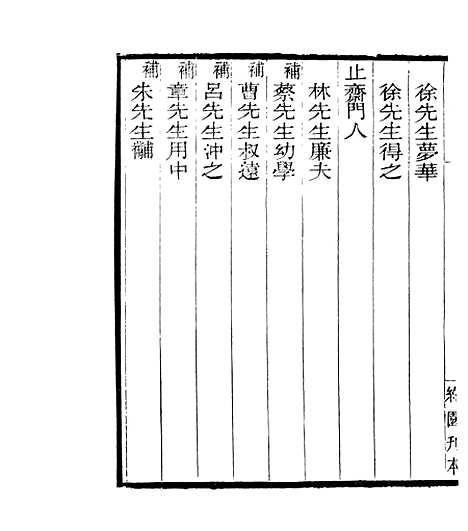 徐先生夢華
徐先生得之
止齋門人
林先生廉夫
補 蔡先生幼學
補 曹先生叔遠
補 呂先生沖之
補 章先生用中
補 朱先生黼
約園刊本